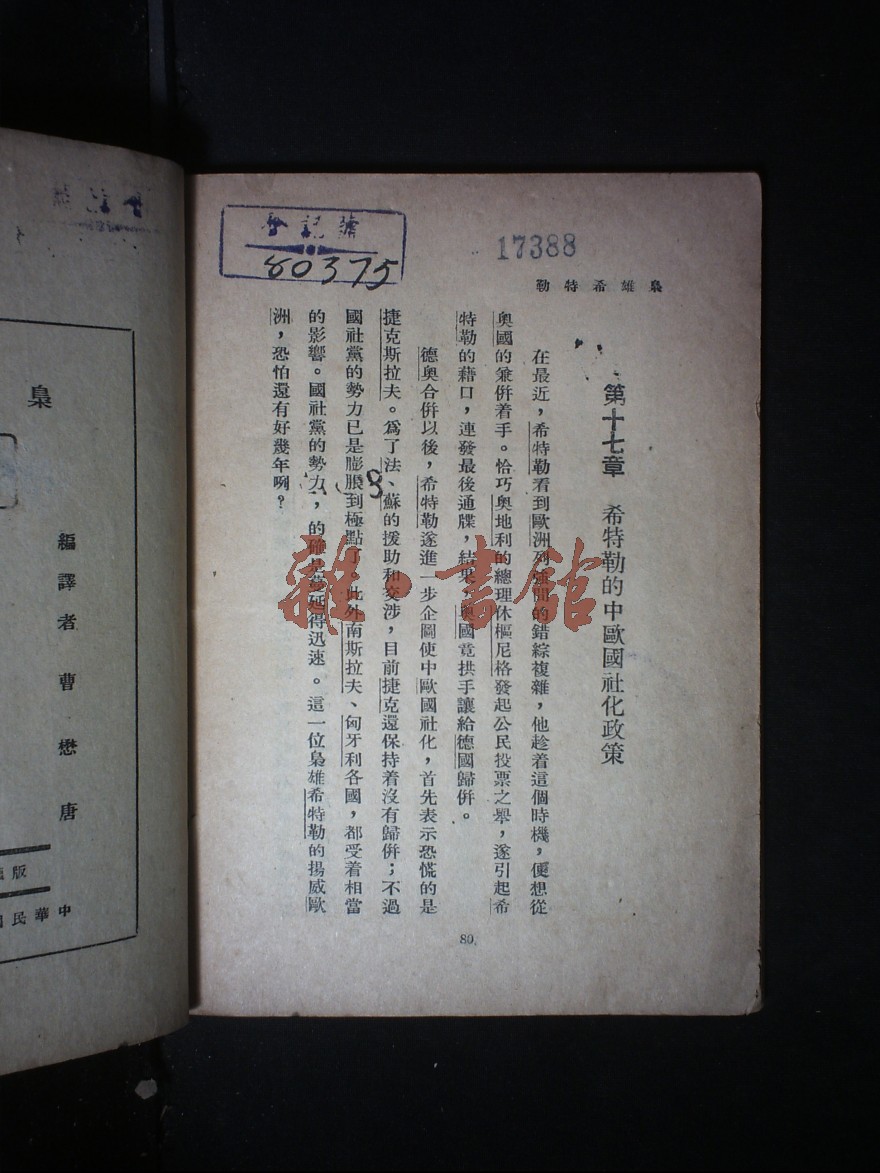 登記號
80375
17388
梟雄希特勒
第十七章 希特勒的中歐國社化政策
在最近，希特勒看到歐洲列強間的錯綜複雜，他趁着這個時機，便想從
奧國的兼併着手。恰巧奧地利的總理休樞尼格發起公民投票之舉，遂引起希
特勒的藉口，連發最後通牒，結果，奧國竟拱手讓給德國歸併。
德奧合併以後，希特勒遂進一步企圖使中歐國社化，首先表示恐慌的是
捷克斯拉夫。爲了法、蘇的援助和交涉，目前捷克還保持着沒有歸併；不過
國社黨的勢力已是膨脹到極點了，此外南斯拉夫、匈牙利各國，都受着相當
的影響。國社黨的勢力，的確是蔓延得迅速。這一位梟雄希特勒的揚威歐
洲，恐怕還有好幾年咧？
80
雜·書館
梟
編譯者 曹懋唐
版
中華民國